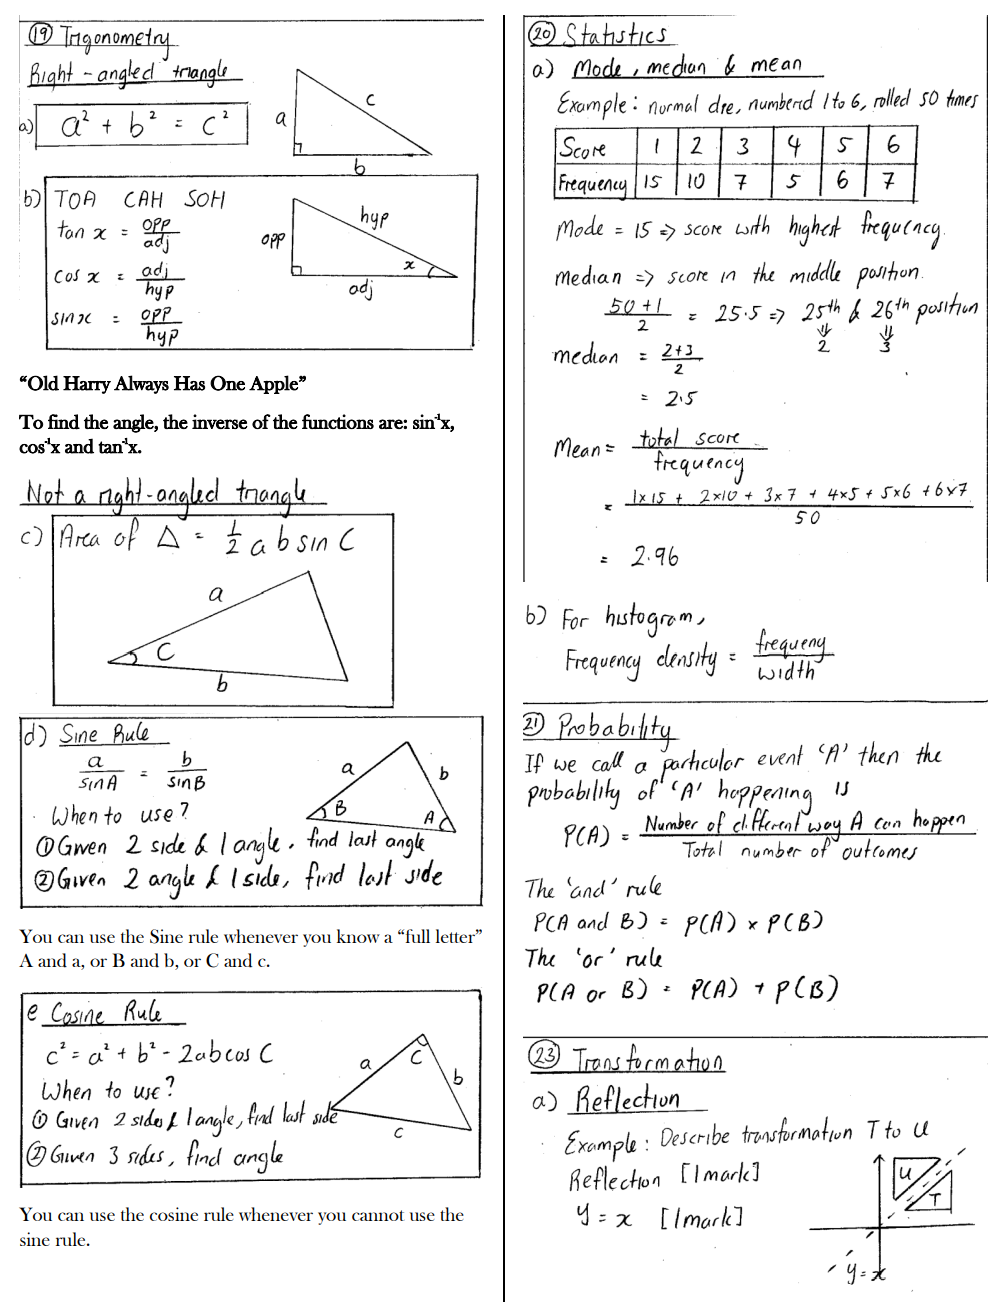 19 Trigonometry
Right-angled triangle
a) a² + b² = c²
a
c
b
b) TOA CAH SOH
tan x = opp/adj
cos x = adj/hyp
sin x = opp/hyp
opp
hyp
x
adj
“Old Harry Always Has One Apple”
To find the angle, the inverse of the functions are: sin⁻¹x,
cos⁻¹x and tan⁻¹x.
Not a right-angled triangle
c) Area of Δ = ½ a b sin C
a
C
b
d) Sine Rule
a/sin A = b/sin B
When to use?
① Given 2 side & 1 angle, find last angle
② Given 2 angle & 1 side, find last side
a
b
B
A
You can use the Sine rule whenever you know a “full letter”
A and a, or B and b, or C and c.
e Cosine Rule
c² = a² + b² - 2ab cos C
When to use?
① Given 2 sides & 1 angle, find last side
② Given 3 sides, find angle
a
C
b
c
You can use the cosine rule whenever you cannot use the
sine rule.
20 Statistics
a) Mode, median & mean
Example: normal die, numbered 1 to 6, rolled 50 times
Score 1 2 3 4 5 6
Frequency 15 10 7 5 6 7
Mode = 15 => score with highest frequency.
Median => score in the middle position.
50+1/2 = 25.5 => 25th & 26th position
⇓ ⇓
2 3
median = 2+3/2
= 2.5
Mean = total score/frequency
= 1x15 + 2x10 + 3x7 + 4x5 + 5x6 + 6x7/50
= 2.96
b) For histogram,
Frequency density = frequeny/width
21 Probability
If we call a particular event ‘A’ then the
probability of ‘A’ happening is
P(A) = Number of different way A can happen/Total number of outcomes
The ‘and’ rule
P(A and B) = P(A) x P(B)
The ‘or’ rule
P(A or B) = P(A) + P(B)
23 Transformation
a) Reflection
Example: Describe transformation T to U
Reflection [1mark]
y = x [1mark]
U
T
y = x